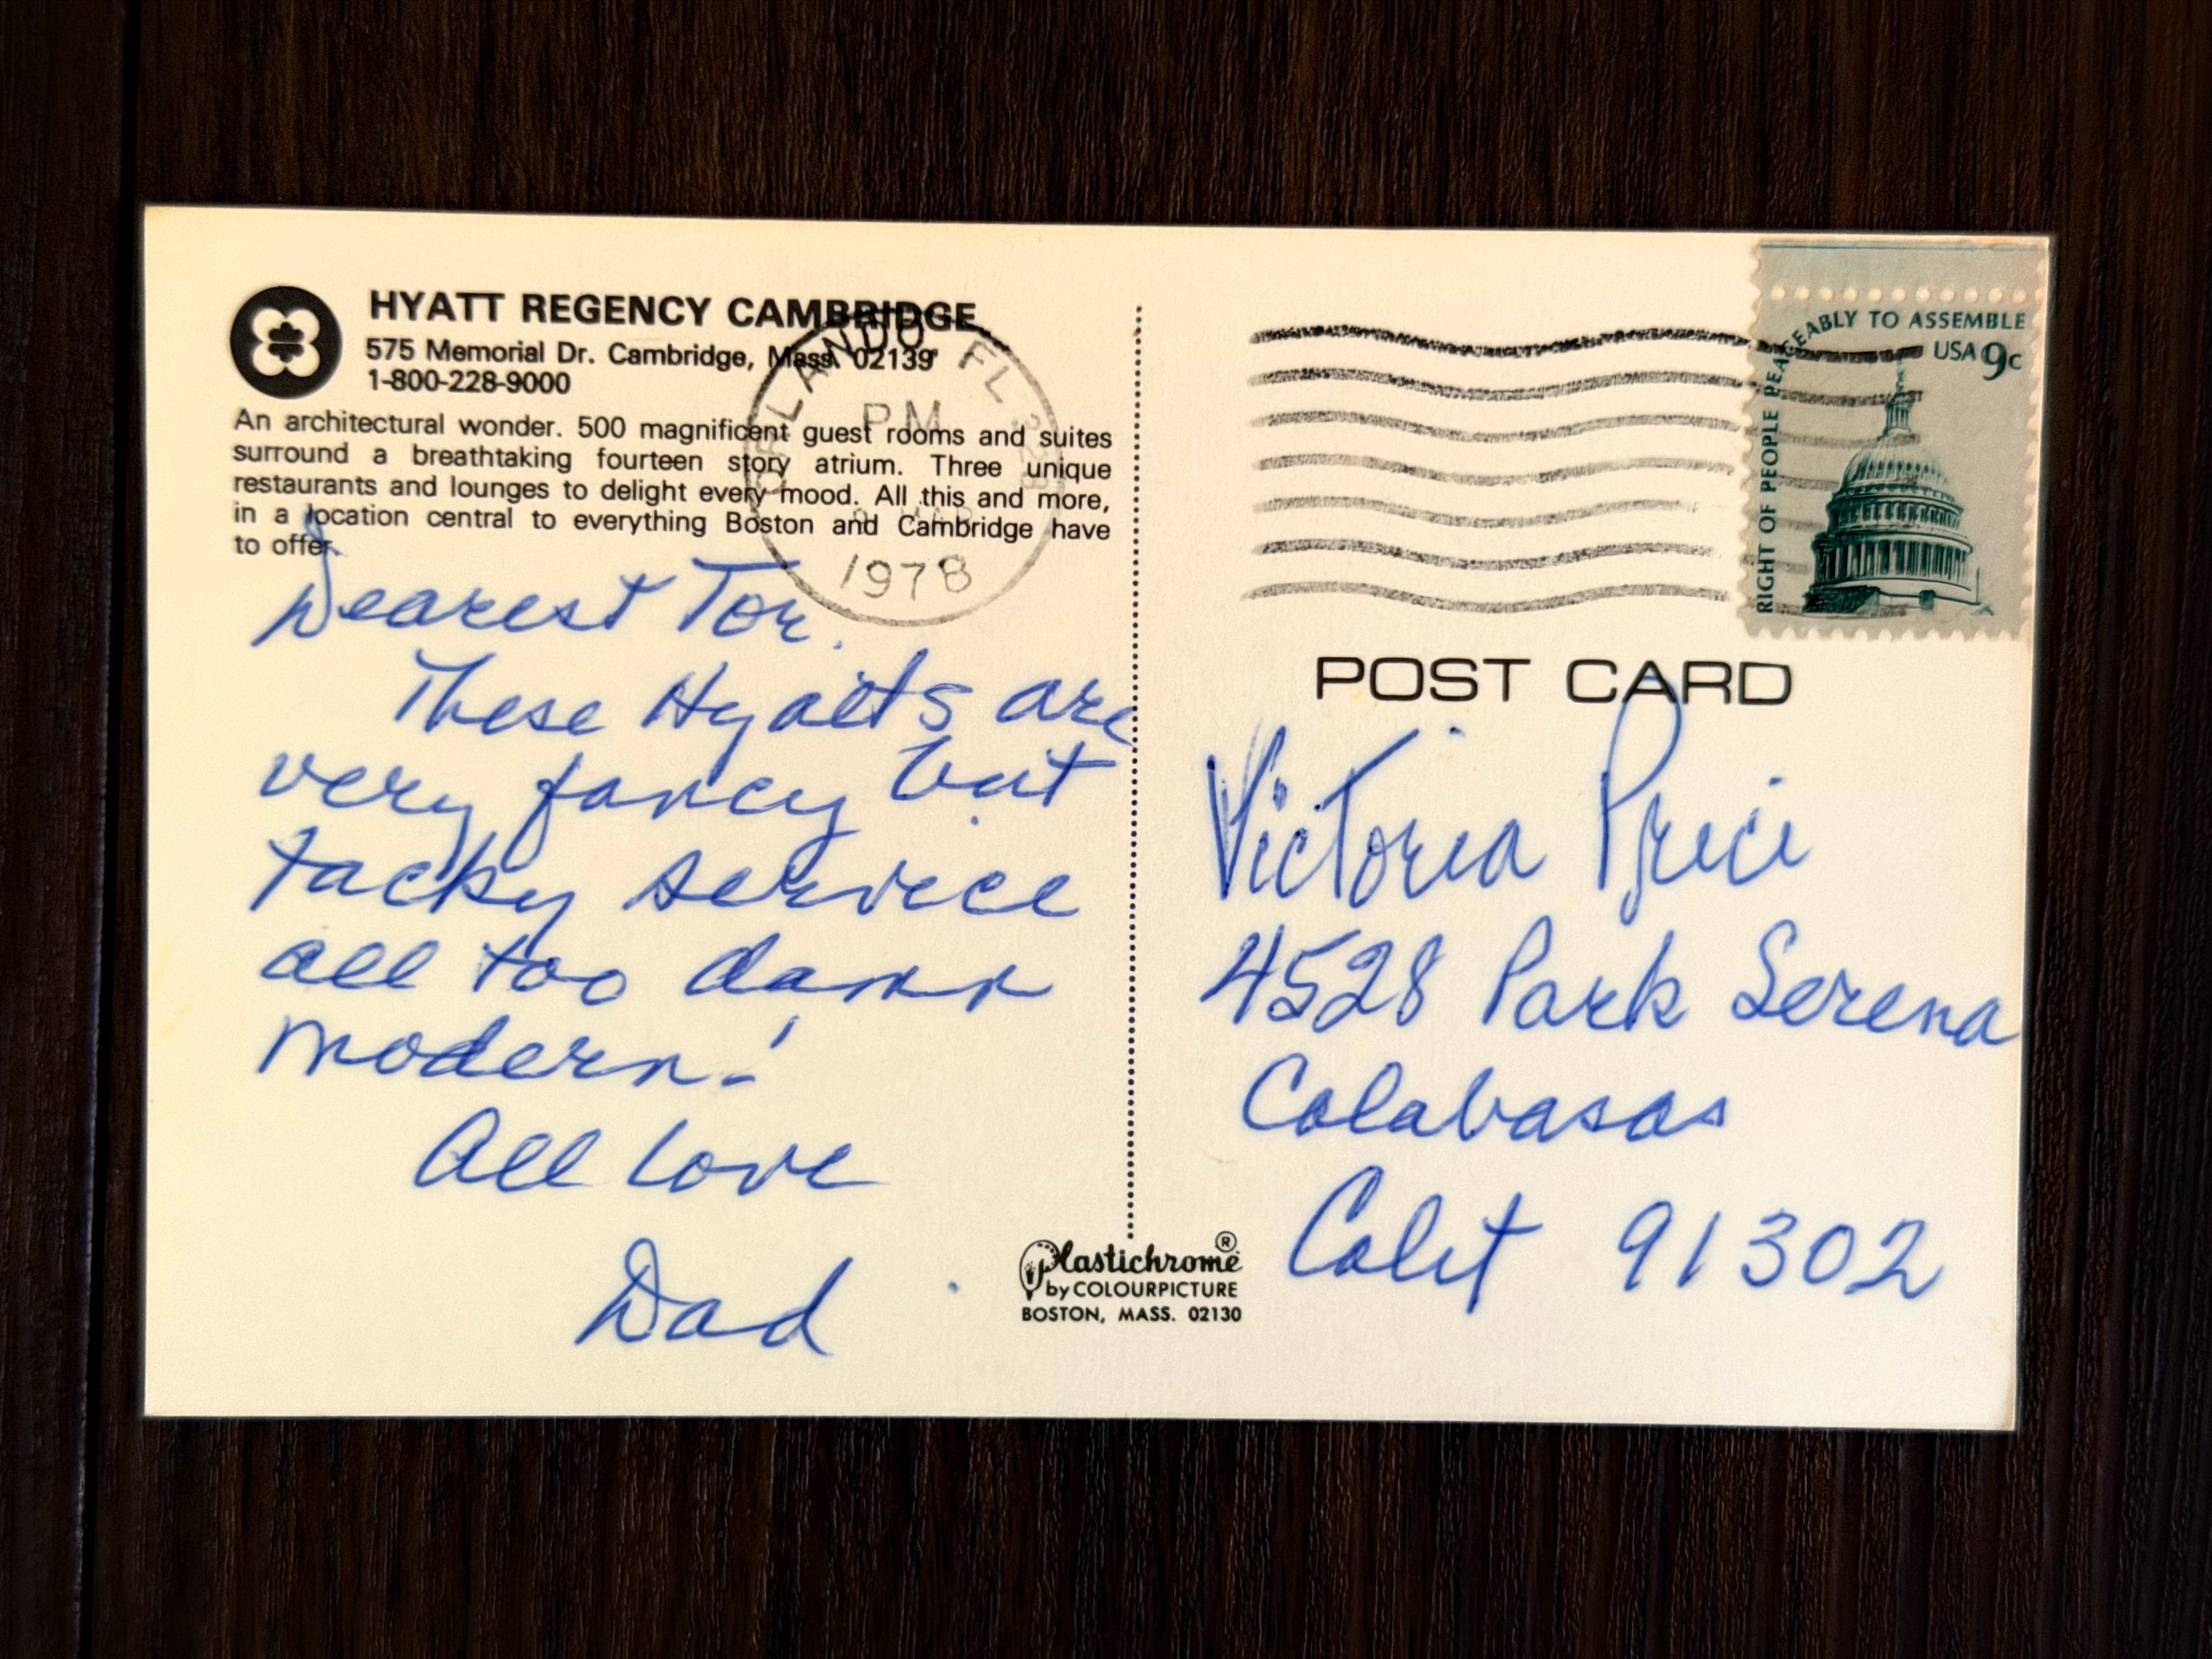 HYATT REGENCY CAMBRIDGE
575 Memorial Dr. Cambridge, Mass. 02139
1-800-228-9000
An architectural wonder. 500 magnificent guest rooms and suites
surround a breathtaking fourteen story atrium. Three unique
restaurants and lounges to delight every mood. All this and more,
in a location central to everything Boston and Cambridge have
to offer.
ORLANDO FL
PM
1978
Dearest Tor.
These Hyatts are
very fancy but
tacky service
all too damn
modern!
All love
Dad
Plastichrome®
by COLOURPICTURE
BOSTON, MASS. 02130
RIGHT OF PEOPLE PEACEABLY TO ASSEMBLE
USA 9c
POST CARD
Victoria Price
4528 Park Serena
Calabasas
Calif 91302